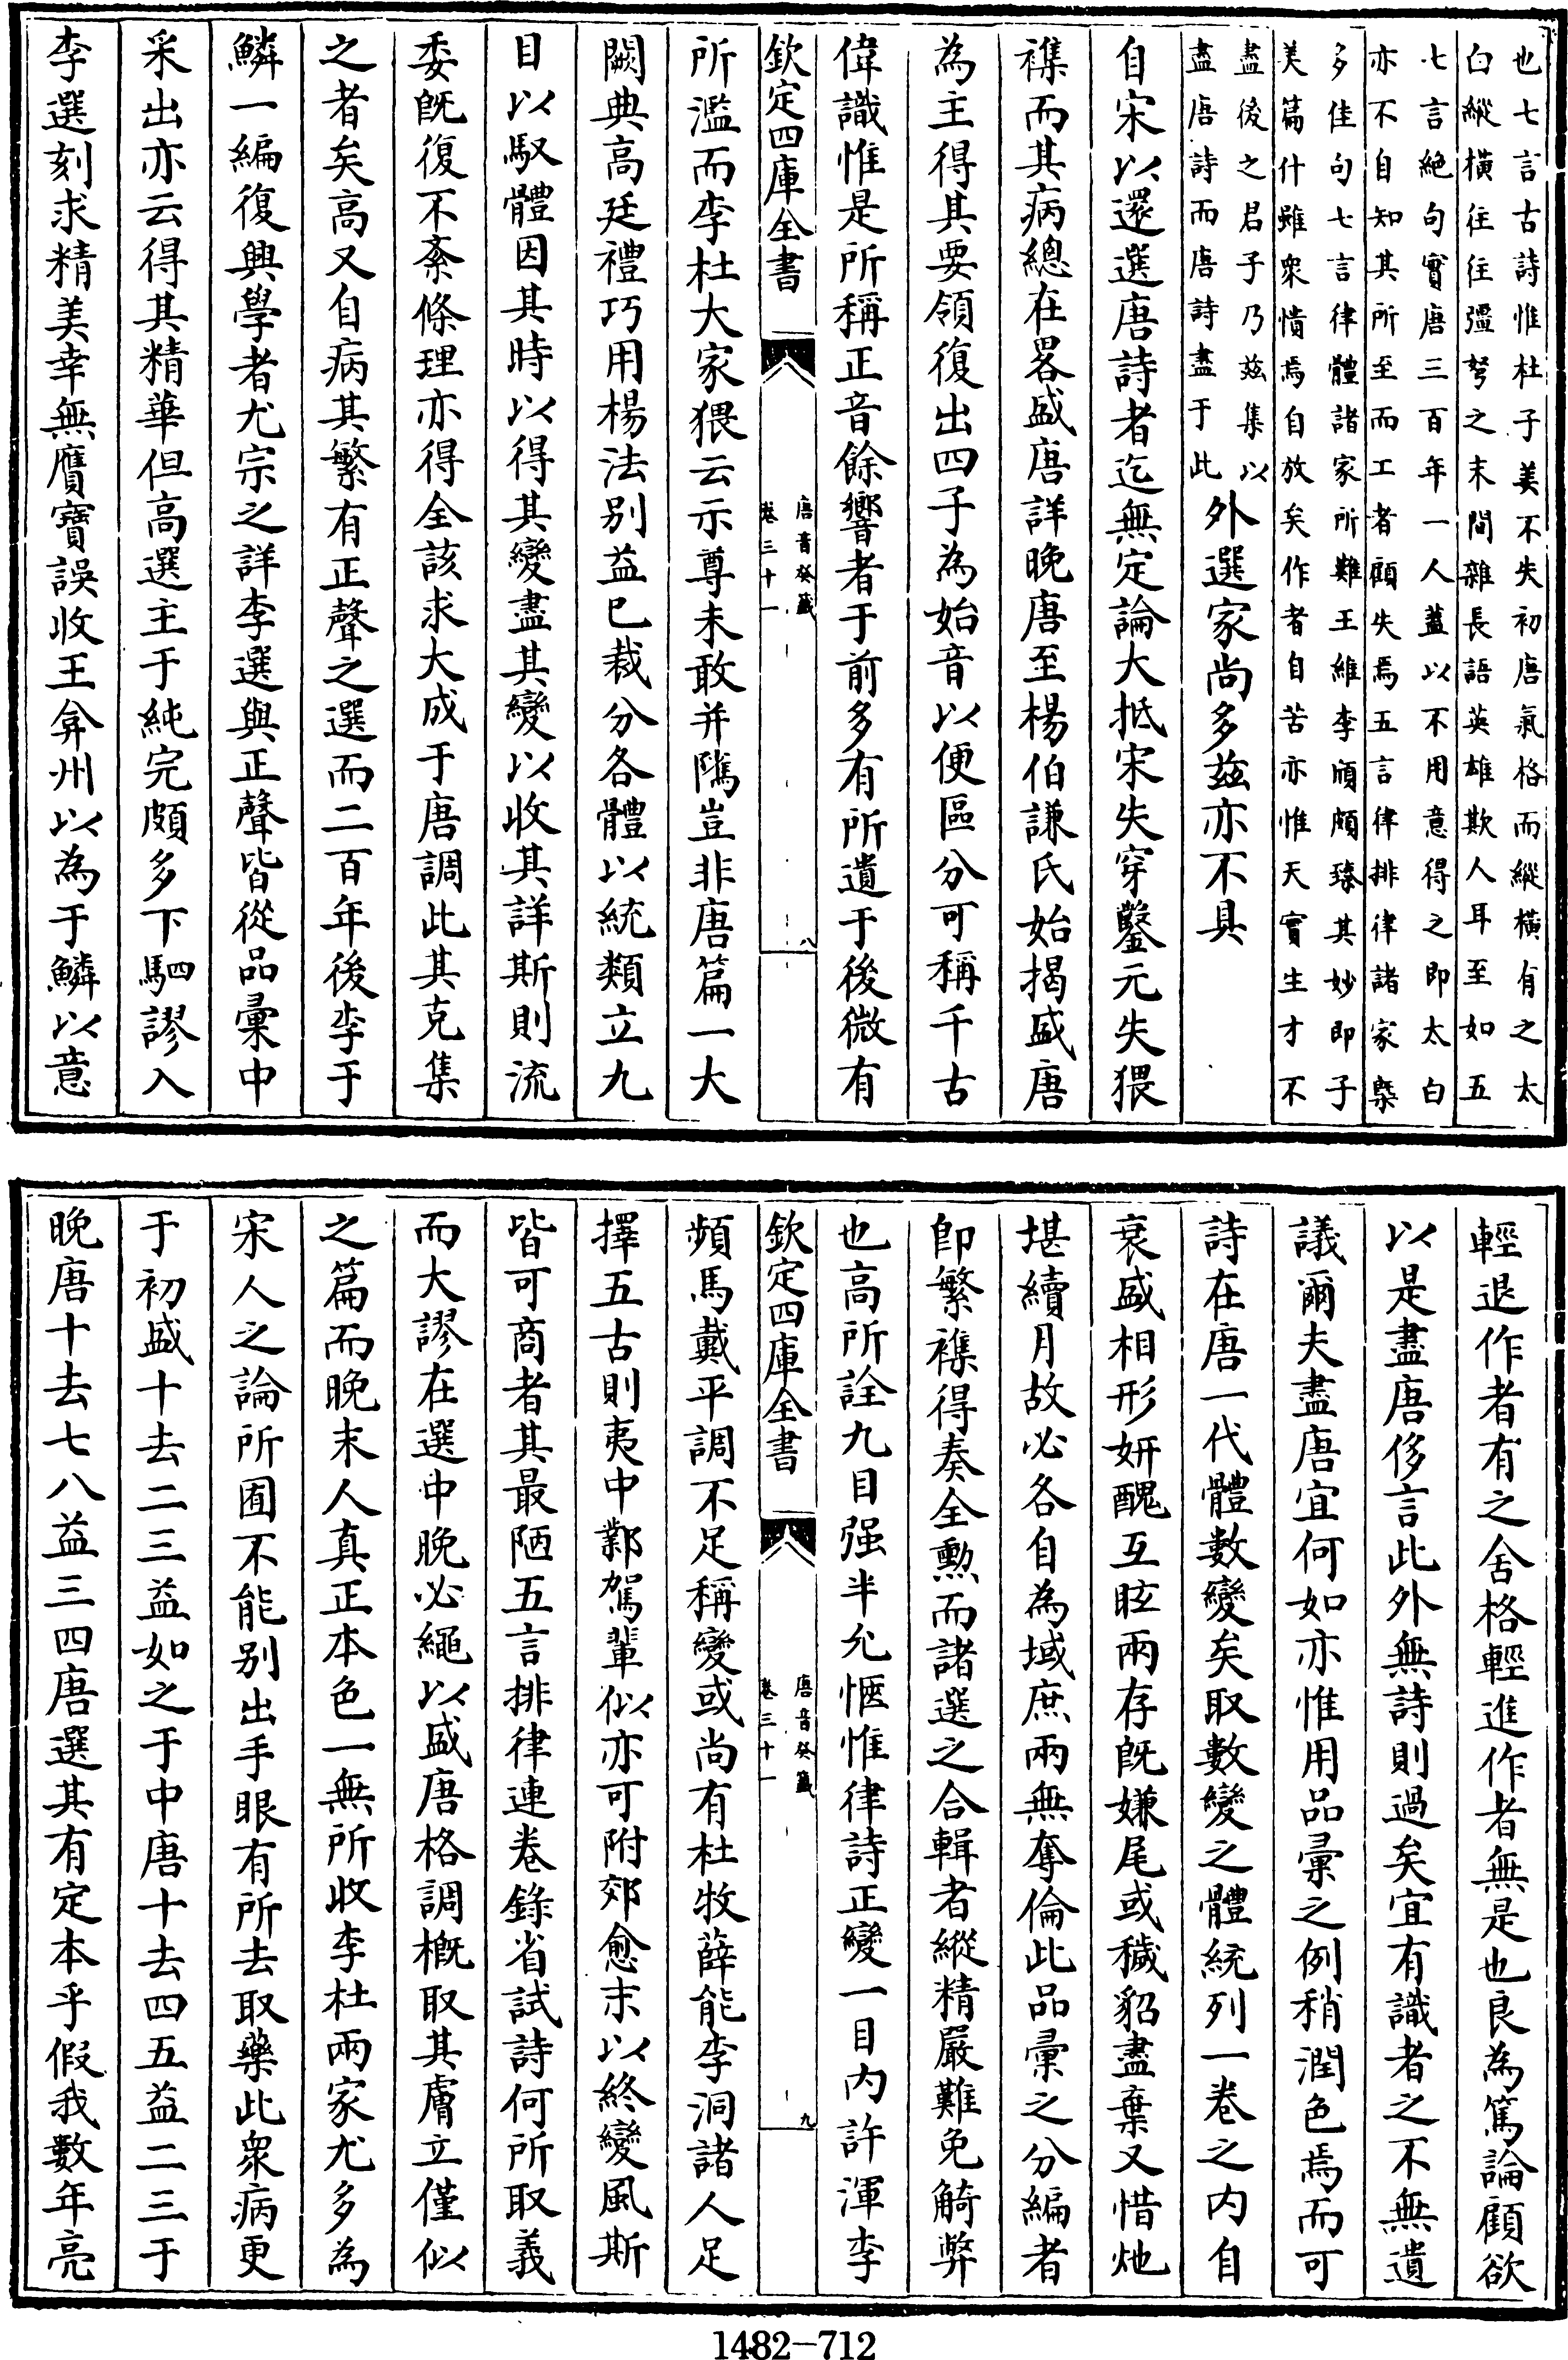 也七言古詩惟杜子美不失初唐氣格而縱橫有之太
白縱橫往往彊弩之末間雜長語英雄欺人耳至如五
七言絶句實唐三百年一人蓋以不用意得之即太白
亦不自知其所至而工者顧失焉五言律排律諸家槩
多佳句七言律體諸家所難王維李頎頗臻其妙即子
美篇什雖衆憒焉自放矣作者自苦亦惟天實生才不
盡後之君子乃兹集以
盡唐詩而唐詩盡于此
外選家尚多兹亦不具
自宋以還選唐詩者迄無定論大抵宋失穿鑿元失猥
襍而其病總在畧盛唐詳晚唐至楊伯謙氏始揭盛唐
為主得其要領復出四子為始音以便區分可稱千古
偉識惟是所稱正音餘響者于前多有所遺于後微有
欽定四庫全書
唐音癸籖
卷三十一
八
所濫而李杜大家猥云示尊未敢并隲豈非唐篇一大
闕典高廷禮巧用楊法别益已裁分各體以統類立九
目以馭體因其時以得其變盡其變以收其詳斯則流
委旣復不紊條理亦得全該求大成于唐調此其克集
之者矣高又自病其繁有正聲之選而二百年後李于
鱗一編復興學者尤宗之詳李選與正聲皆從品彙中
采出亦云得其精華但高選主于純完頗多下駟謬入
李選刻求精美幸無贋寶誤收王弇州以為于鱗以意
輕退作者有之舍格輕進作者無是也良為篤論顧欲
以是盡唐侈言此外無詩則過矣宜有識者之不無遺
議爾夫盡唐宜何如亦惟用品彙之例稍潤色焉而可
詩在唐一代體數變矣取數變之體統列一卷之内自
衰盛相形妍醜互眩兩存旣嫌尾或穢貂盡棄又惜灺
堪續月故必各自為域庶兩無奪倫此品彙之分編者
卽繁襍得奏全勲而諸選之合輯者縱精嚴難免觭弊
也高所詮九目强半允愜惟律詩正變一目内許渾李
欽定四庫全書
唐音癸籖
卷三十一
九
頻馬戴平調不足稱變或尚有杜牧薛能李洞諸人足
擇五古則夷中鄴駕輩似亦可附郊愈末以終變風斯
皆可商者其最陋五言排律連卷錄省試詩何所取義
而大謬在選中晚必繩以盛唐格調槪取其膚立僅似
之篇而晚末人真正本色一無所收李杜兩家尤多為
宋人之論所囿不能别出手眼有所去取藥此衆病更
于初盛十去二三益如之于中唐十去四五益二三于
晚唐十去七八益三四唐選其有定本乎假我數年亮
1482-712